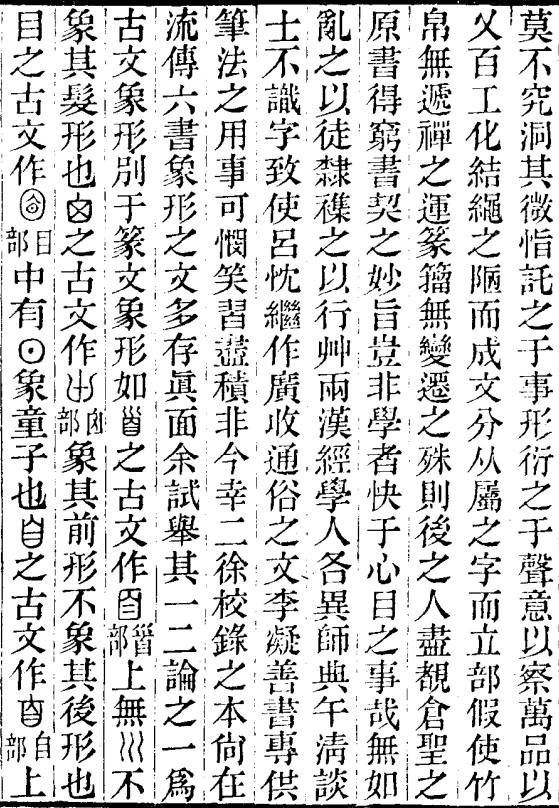 莫不究洞其微恉託之于事形衍之于聲意以察萬品以
乂百工化結繩之陋而成文分从屬之字而立部假使竹
帛無遞禪之運篆籀無變遷之殊則後之人盡覩倉聖之
原書得窮書契之妙旨豈非學者快于心目之事哉無如
亂之以徒隸襍之以行艸兩漢經學人各異師典午淸談
士不識字致使呂忱繼作廣收通俗之文李凝善書專供
筆法之用事可憫笑習蓋積非今幸二徐校錄之本尙在
流傳六書象形之文多存眞面余試舉其一二論之一爲
古文象形別于篆文象形如𦣻之古文作𦣻部上無巛不
象其髮形也囟之古文作囟部象其前形不象其後形也
目之古文作目部中有⊙象童子也自之古文作自部上